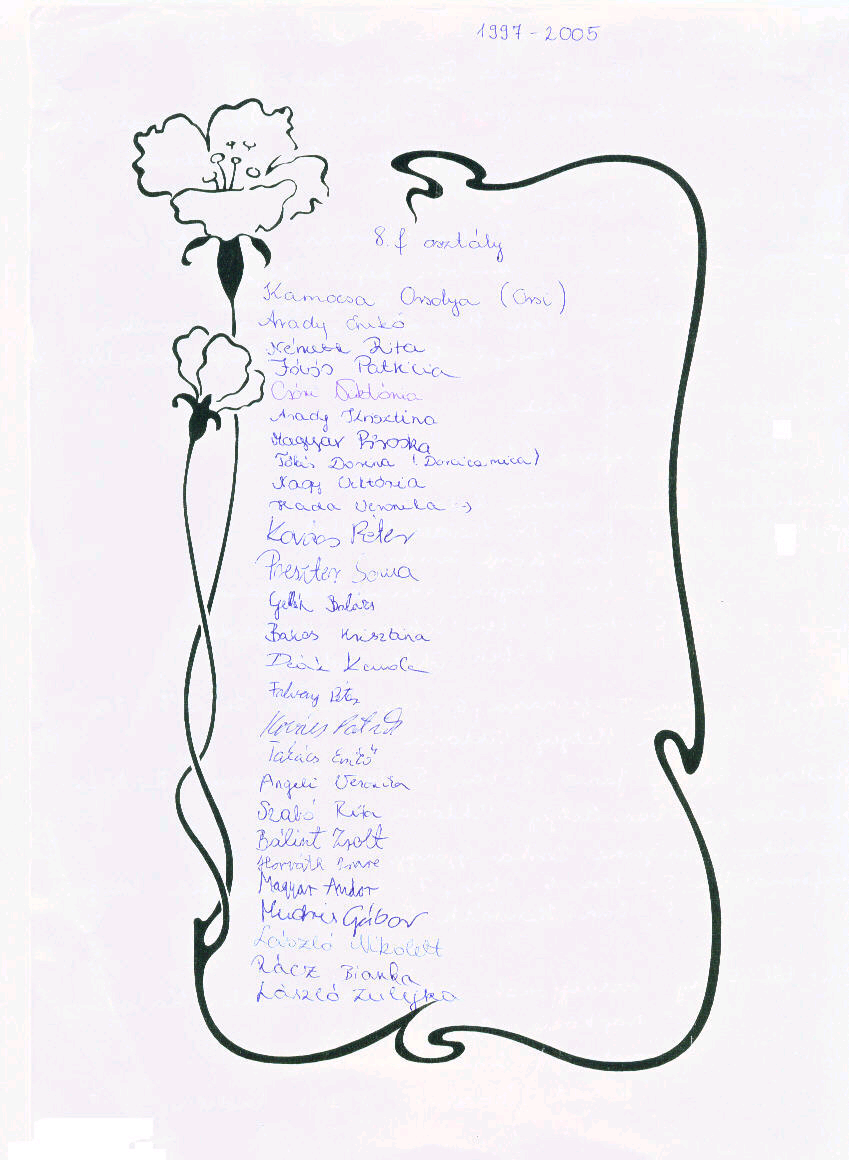 1997 - 2005
8. f osztály
Kamocsa Orsolya (Orsi)
Arady Enikő
Németh Rita
Patrícia
Csóri Viktória
Arady Krisztina
Magyar Piroska
Dorina
Nagy Viktória
Kada Veronika :-)
Kovács Péter
Preszter Soma
Balázs
Bakos Krisztina
Deák Kamola
Péter
Kovács Patrik
Takács Enikő
Angeli Veronika
Szabó Rita
Bálint Zsolt
Horváth Imre
Magyar Andor
Mudris Gábor
László Nikolett
Rácz Bianka
László Zulejka